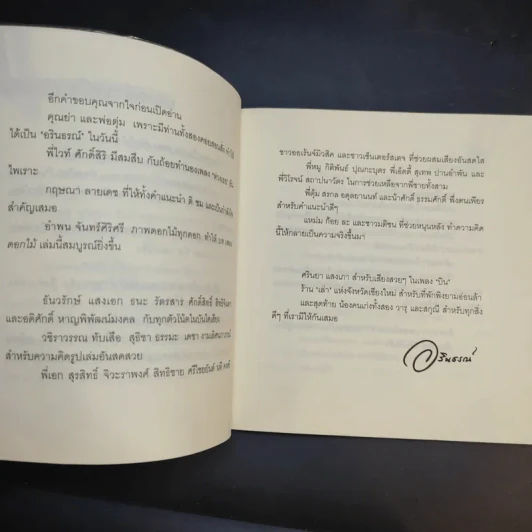 อีกคำขอบคุณจากใจก่อนเปิดอ่าน
คุณย่า และพ่อตุ่ม เพราะมีท่านทั้งสองคอยสอนสั่ง ทำให้
ได้เป็น 'อรินธรณ์' ในวันนี้
พี่ไวท์ ศักดิ์สิริ มีสมสืบ กับถ้อยทำนองเพลง
ไพเราะ
กฤษณา ลายเดช ที่ให้ทั้งคำแนะนำ ติ ชม และเป็นกำลังใจ
สำคัญเสมอ
อำพน จันทร์ศิริศรี ภาพดอกไม้ทุกดอก ทำให้
ดอกไม้ เล่มนี้สมบูรณ์ยิ่งขึ้น
ธันวรักษ์ แสงเอก ธนะ วัดรสาร ศักดิ์สิทธิ์
และอดิศักดิ์ หาญพิพัฒน์มงคล กับทุกตัวโน้ตในบันไดเสียง
วชิราวรรณ ทับเสือ สุธิชา ธรรมะ เดชา
สำหรับความคิดรูปเล่มอันสดสวย
พี่เอก สุรสิทธิ์ จิวะราพงศ์ สิทธิชาย
ชาวออเร้นจ์มิวสิค และชาวเซ็นเตอร์สเตจ ที่ช่วยผสมเสียงอันสดใส
พี่หมู กิติพันธ์ ปุณกะบุตร พี่เอ๊ดดี้ สุเทพ ปานอำพัน และ
พี่วิโรจน์ สถาปนาวัตร ในการช่วยเหลือจากพี่ชายทั้งสาม
พี่ตุ้ม สรกล อดุลยานนท์ และน้าศักดิ์ ธรรมศักดิ์ พึ่งตนเพียร
สำหรับคำแนะนำดีๆ
แหม่ม ก้อย ละ และชาวมติชน ที่ช่วยหนุนหลัง ทำความคิด
นี้ให้กลายเป็นความจริงขึ้นมา
ศรินยา แสงเภา สำหรับเสียงสวยๆ ในเพลง 'บิน'
ร้าน 'เล่า' แห่งจังหวัดเชียงใหม่ สำหรับที่พักพิงยามอ่อนล้า
และสุดท้าย น้องคนเก่งทั้งสอง วารุ และสกุณี สำหรับทุกสิ่ง
ดีๆ ที่เรามีให้กันเสมอ
อรินธรณ์